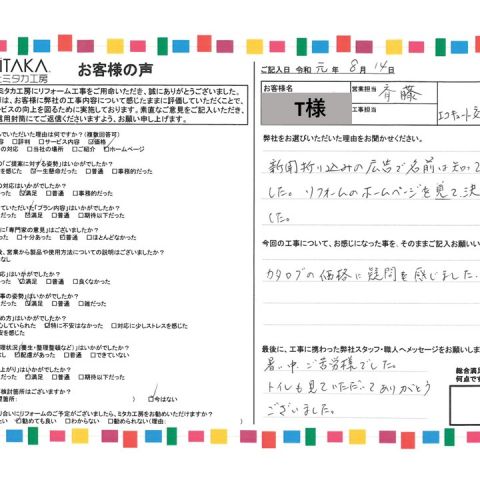 ITAKA
ミタカ工房
お客様の声
ミタカ工房にリフォーム工事をご用命いただき、誠にありがとうございました。
は、お客様に弊社の工事内容について感じたままに評価していただくことで、
ービスの向上を図るために実施しております。素直なご意見をご記入いただき、
信用封筒にてご返信くださいますよう、お願い申し上げます。
んでいただいた理由は何ですか?(複数回答可)
評判 □サービス内容 ☑価格
の対応 □当社の場所 □ご紹介 ☑ホームページ
の「ご提案に対する姿勢」はいかがでしたか?
を感じた ☑一生懸命だった □普通 □事務的だった
の対応はいかがでしたか?
だった ☑満足 □普通 □事務的だった
ていただいた「プラン内容」はいかがでしたか?
だった ☑満足 □普通 □期待以下だった
に「専門家の意見」はございましたか?
った □十分あった ☑普通 □ほとんどなかった
後、営業から製品や使用方法についての説明はございましたか?
なし
応」はいかがでしたか?
だった ☑満足 □普通 □良くなかった
事の姿勢」はいかがでしたか?
だった ☑満足 □普通 □雑だった
め方」はいかがでしたか?
心していられた ☑特に不安はなかった □対応に少しストレスを感じた
安を感じた
理状況(養生・整理整頓など)」はいかがでしたか?
し ☑配慮があった □普通 □できていない
上がり」はいかがでしたか?
だった ☑満足 □普通 □期待以下だった
検討箇所はございますか?
箇所: ) ☑今はない
り合いにリフォームのご予定がございましたら、ミタカ工房をお勧めいただけますか?
たい ☑勧めても良い □わからない □勧められない(理由: )
ご記入日 令和 元 年 8 月 14 日
お客様名
T様
営業担当
斉藤
工事担当
弊社をお選びいただいた理由をお聞かせください。
新聞折り込みの広告で名前は知って
した。リフォームのホームページを見て決
した。
今回の工事について、お感じになった事を、そのままご記入お願い
カタログの価格に疑問を感じました.
最後に、工事に携わった弊社スタッフ・職人へメッセージをお願いしま
暑い中、ご苦労様でした。
トイレも見ていただいてありがとう
ございました。
総合満足
何点です